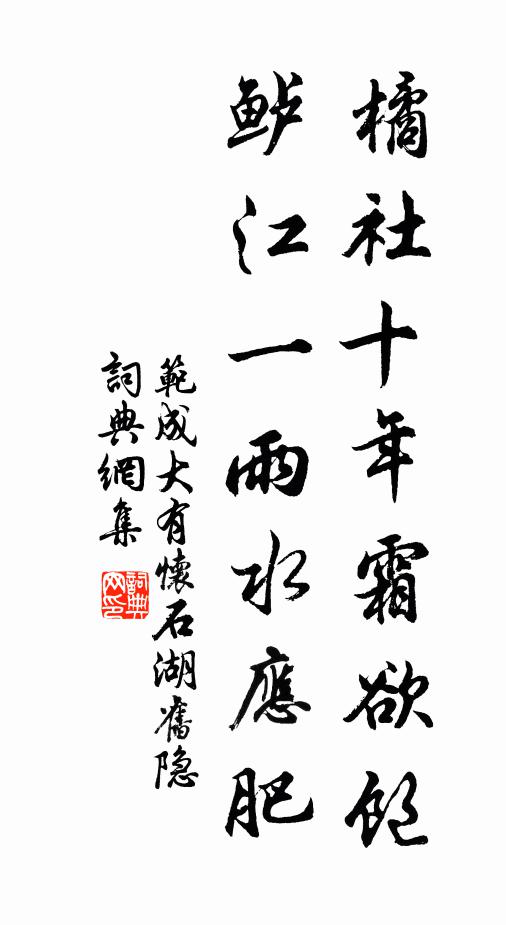 橘社十年霜欲飽
鲈江一雨水應肥
範成大有懷石湖舊隐
詞典網集
詞典网印